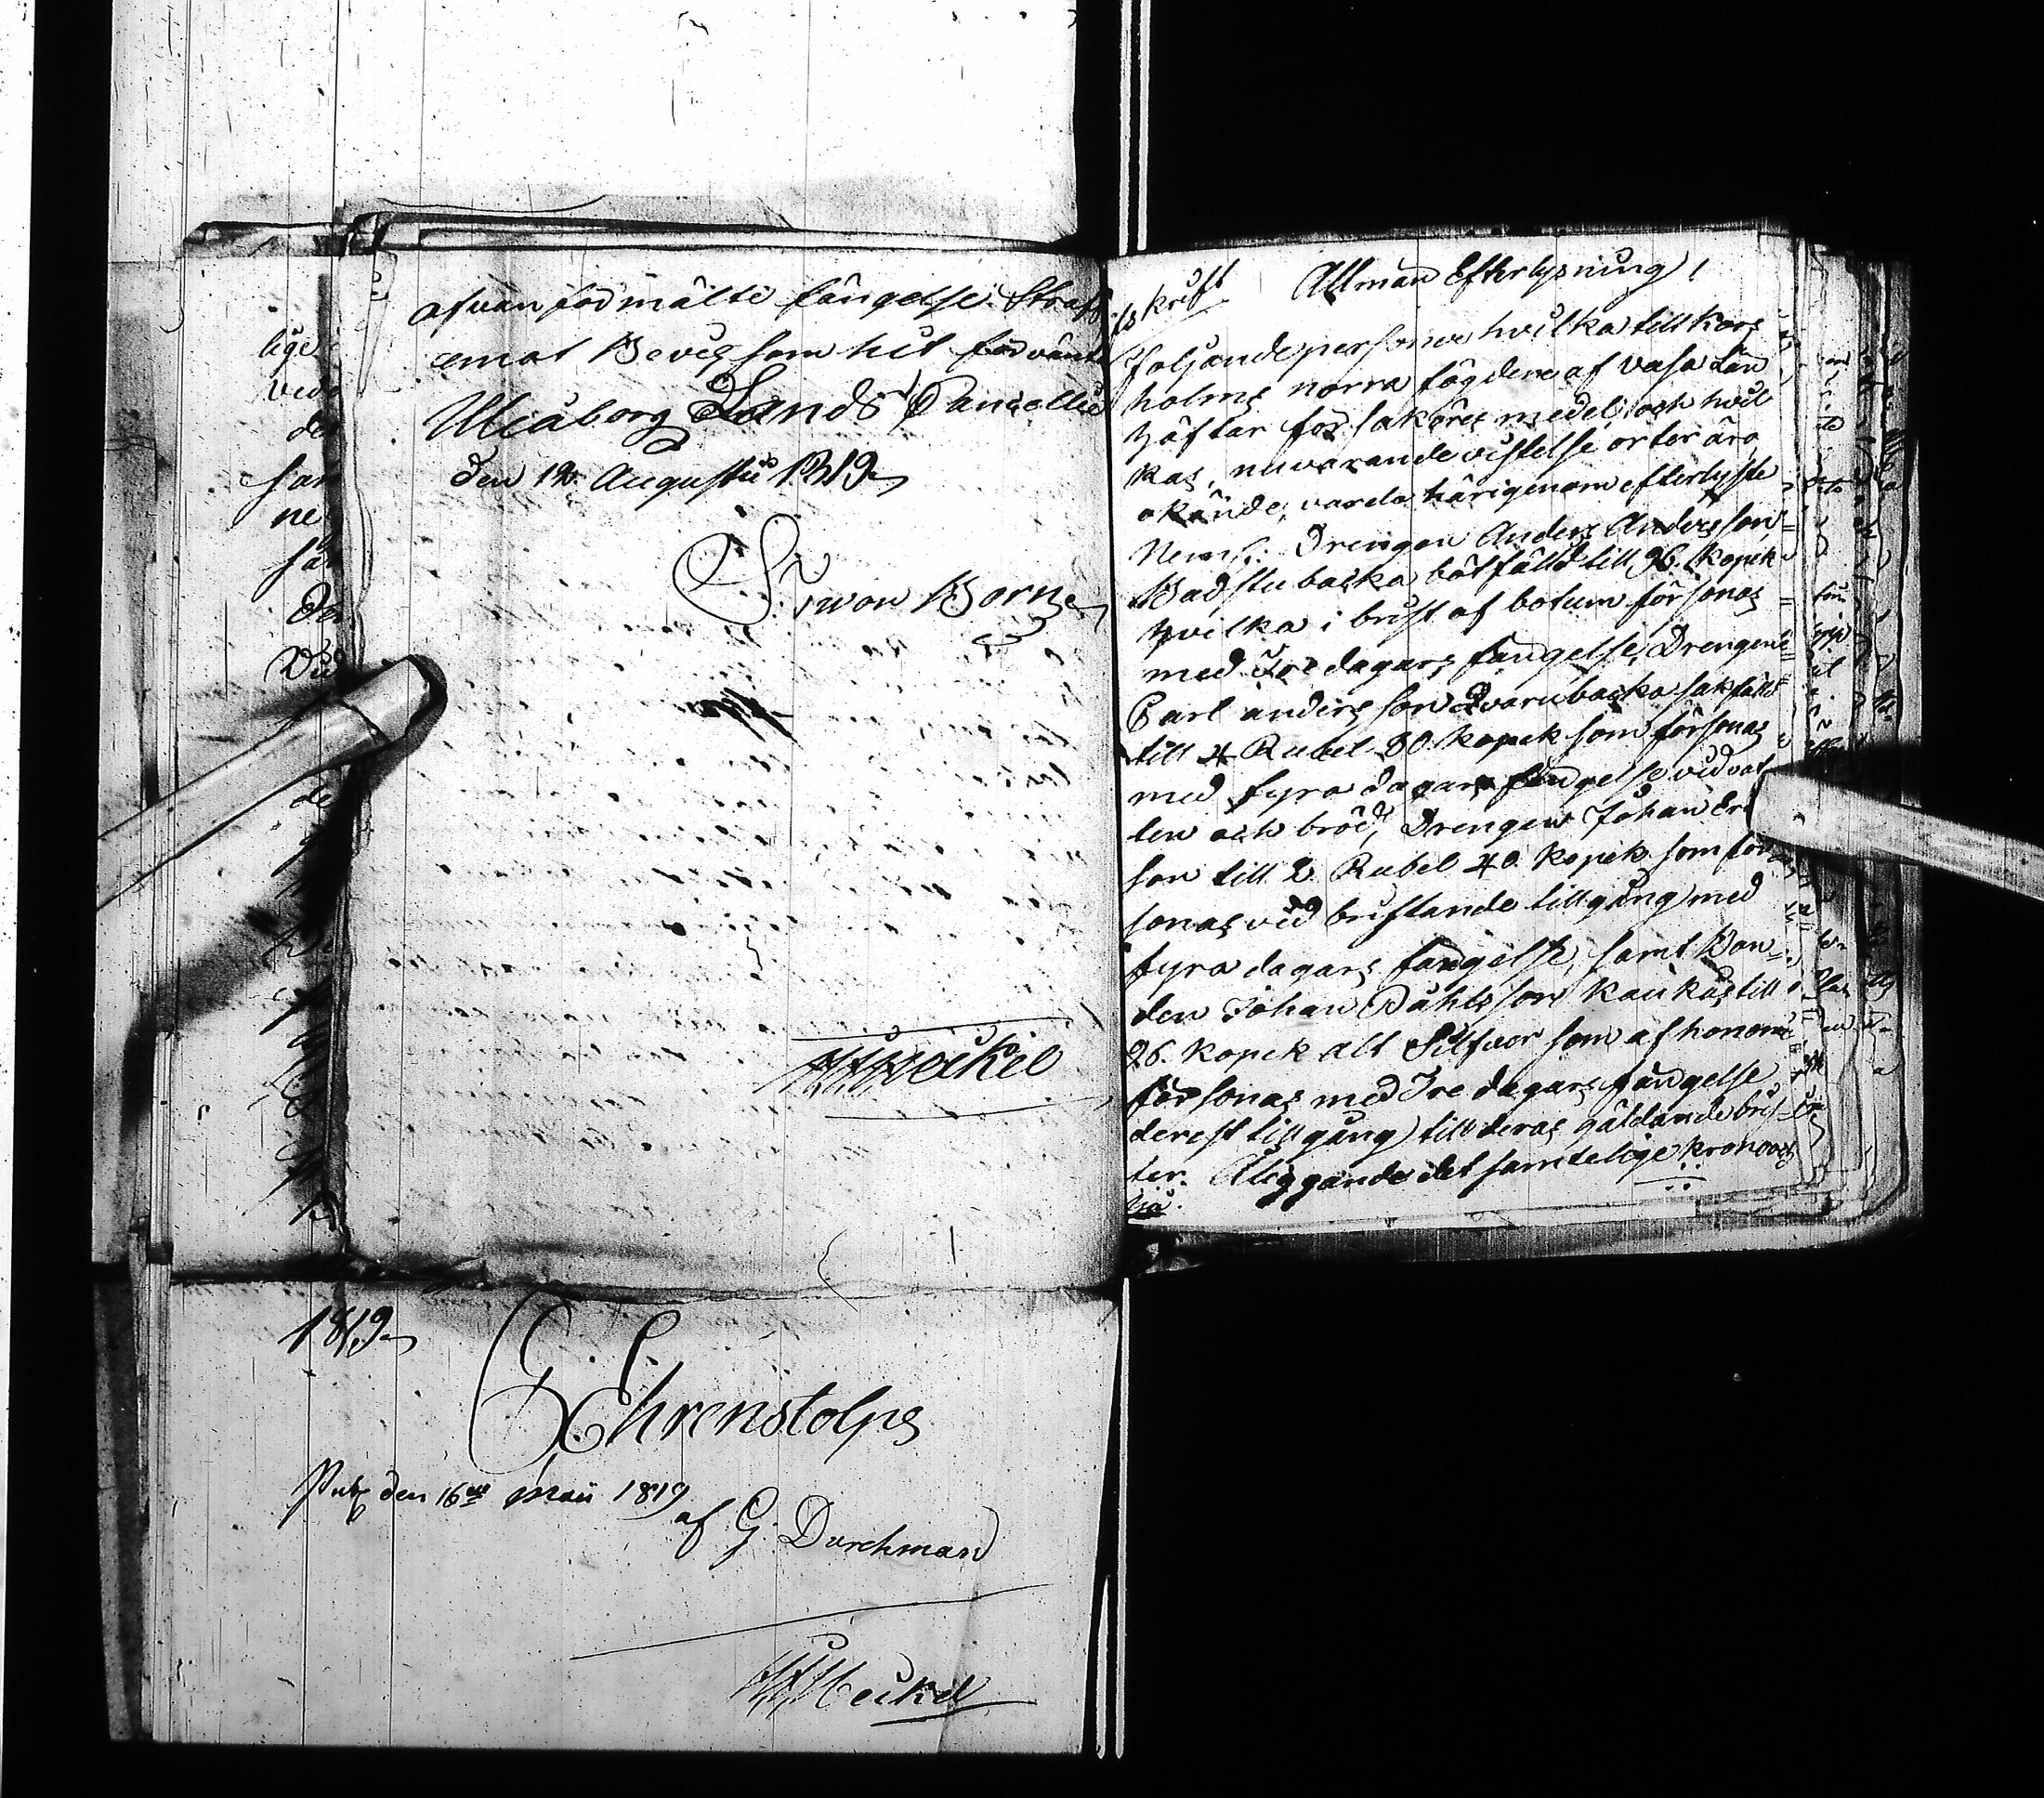 afvan förmälte fängelse Straff
emot Bevis som hit förvänte
Uleåborg Lands Cancellie
den 14 Augusti 1819
Born
HHHeikel
1819
Ehrenstolpe
Publ den 16de Maii 1819
af G. Durchman
HHHeikel
Allmän Efterlysning!
Följande personer hvilka till Kors
holms norra fögderie af Vasa Län
häftar för sakören medel, och hvil
kas, nuvarande vistelse orter äro
okände, varda härigenom efterlyste
Neml: Drengen Anders Andersson
Badstubacka bötfälld till 96. Kopek
hvilka i brist af botum försonas
med Tre dagars fängelse, Drengen
Carl Andersson Qvarnbacka sakfälld
till 4 Rubel 80. Kopek som försonas
med fyra dagars fängelse vid vat
ten och bröd, Drengen Johan Er
son till 2 Rubel 40. Kopek som för
sonas vid bristande tillgång med
fyra dagars fängelse, samt Bon=
den Johan Dahlsson Kaukas till
96. Kopek alt Silfver som af honom
försonas med Tre dagars fängelse
derest tillgång till deras gäldande bris
ter. Åliggande det samtelige Krono och